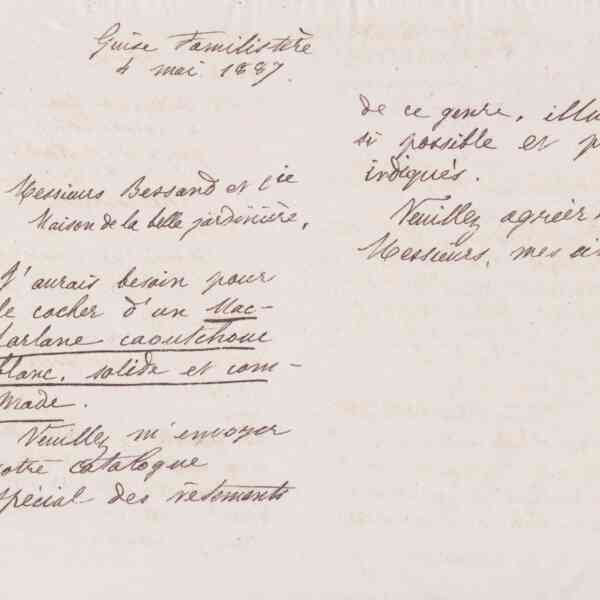 Guise Familistère
4 mai 1887.
Messieurs Bessand et Cie
Maison de la belle jardinière,
J'aurais besoin pour
le cocher d'un Mac-
farlane caoutchouc
blanc, solide et com-
mode.
Veuillez m'envoyer
votre catalogue
spécial des vêtements
de ce genre, illu
si possible et p
indiqués.
Veuillez agréer
Messieurs, mes